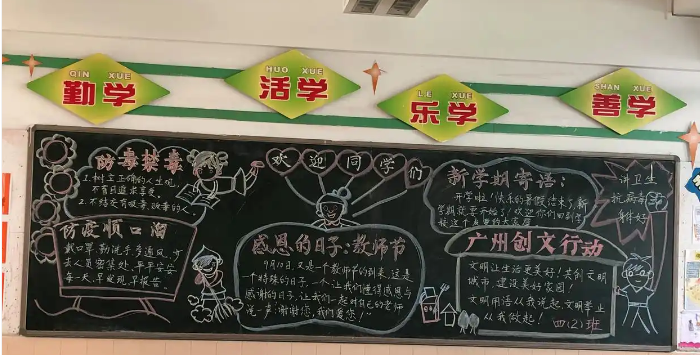 QIN XUE
勤学
HUO XUE
活学
LE XUE
乐学
SHAN XUE
善学
防毒禁毒
1.树立正确的人生观,
不盲目追求享受。
2.不结交有吸毒、贩毒的人。
防疫顺口溜
戴口罩,勤洗手,多通风,少
去人员密集处,平平安安
每一天,早发现,早报告。
欢迎同学们
感恩的日子:教师节
9月10日,又是一个教师节的到来,这是
一个特殊的日子,一个让我们懂得感恩与
感谢的日子,让我们一起对自己的老师
说一声:谢谢您,我们爱您!"
新学期寄语:
开学啦!快乐的暑假结束了,新
学期就要开始了!欢迎你们回到学
校这个温馨的大家庭
广州创文行动
文明让生活更美好!共创文明
城市,建设美好家园!
文明用语从我说起,文明举止
从我做起!
四(2)班
讲卫生
抗病毒